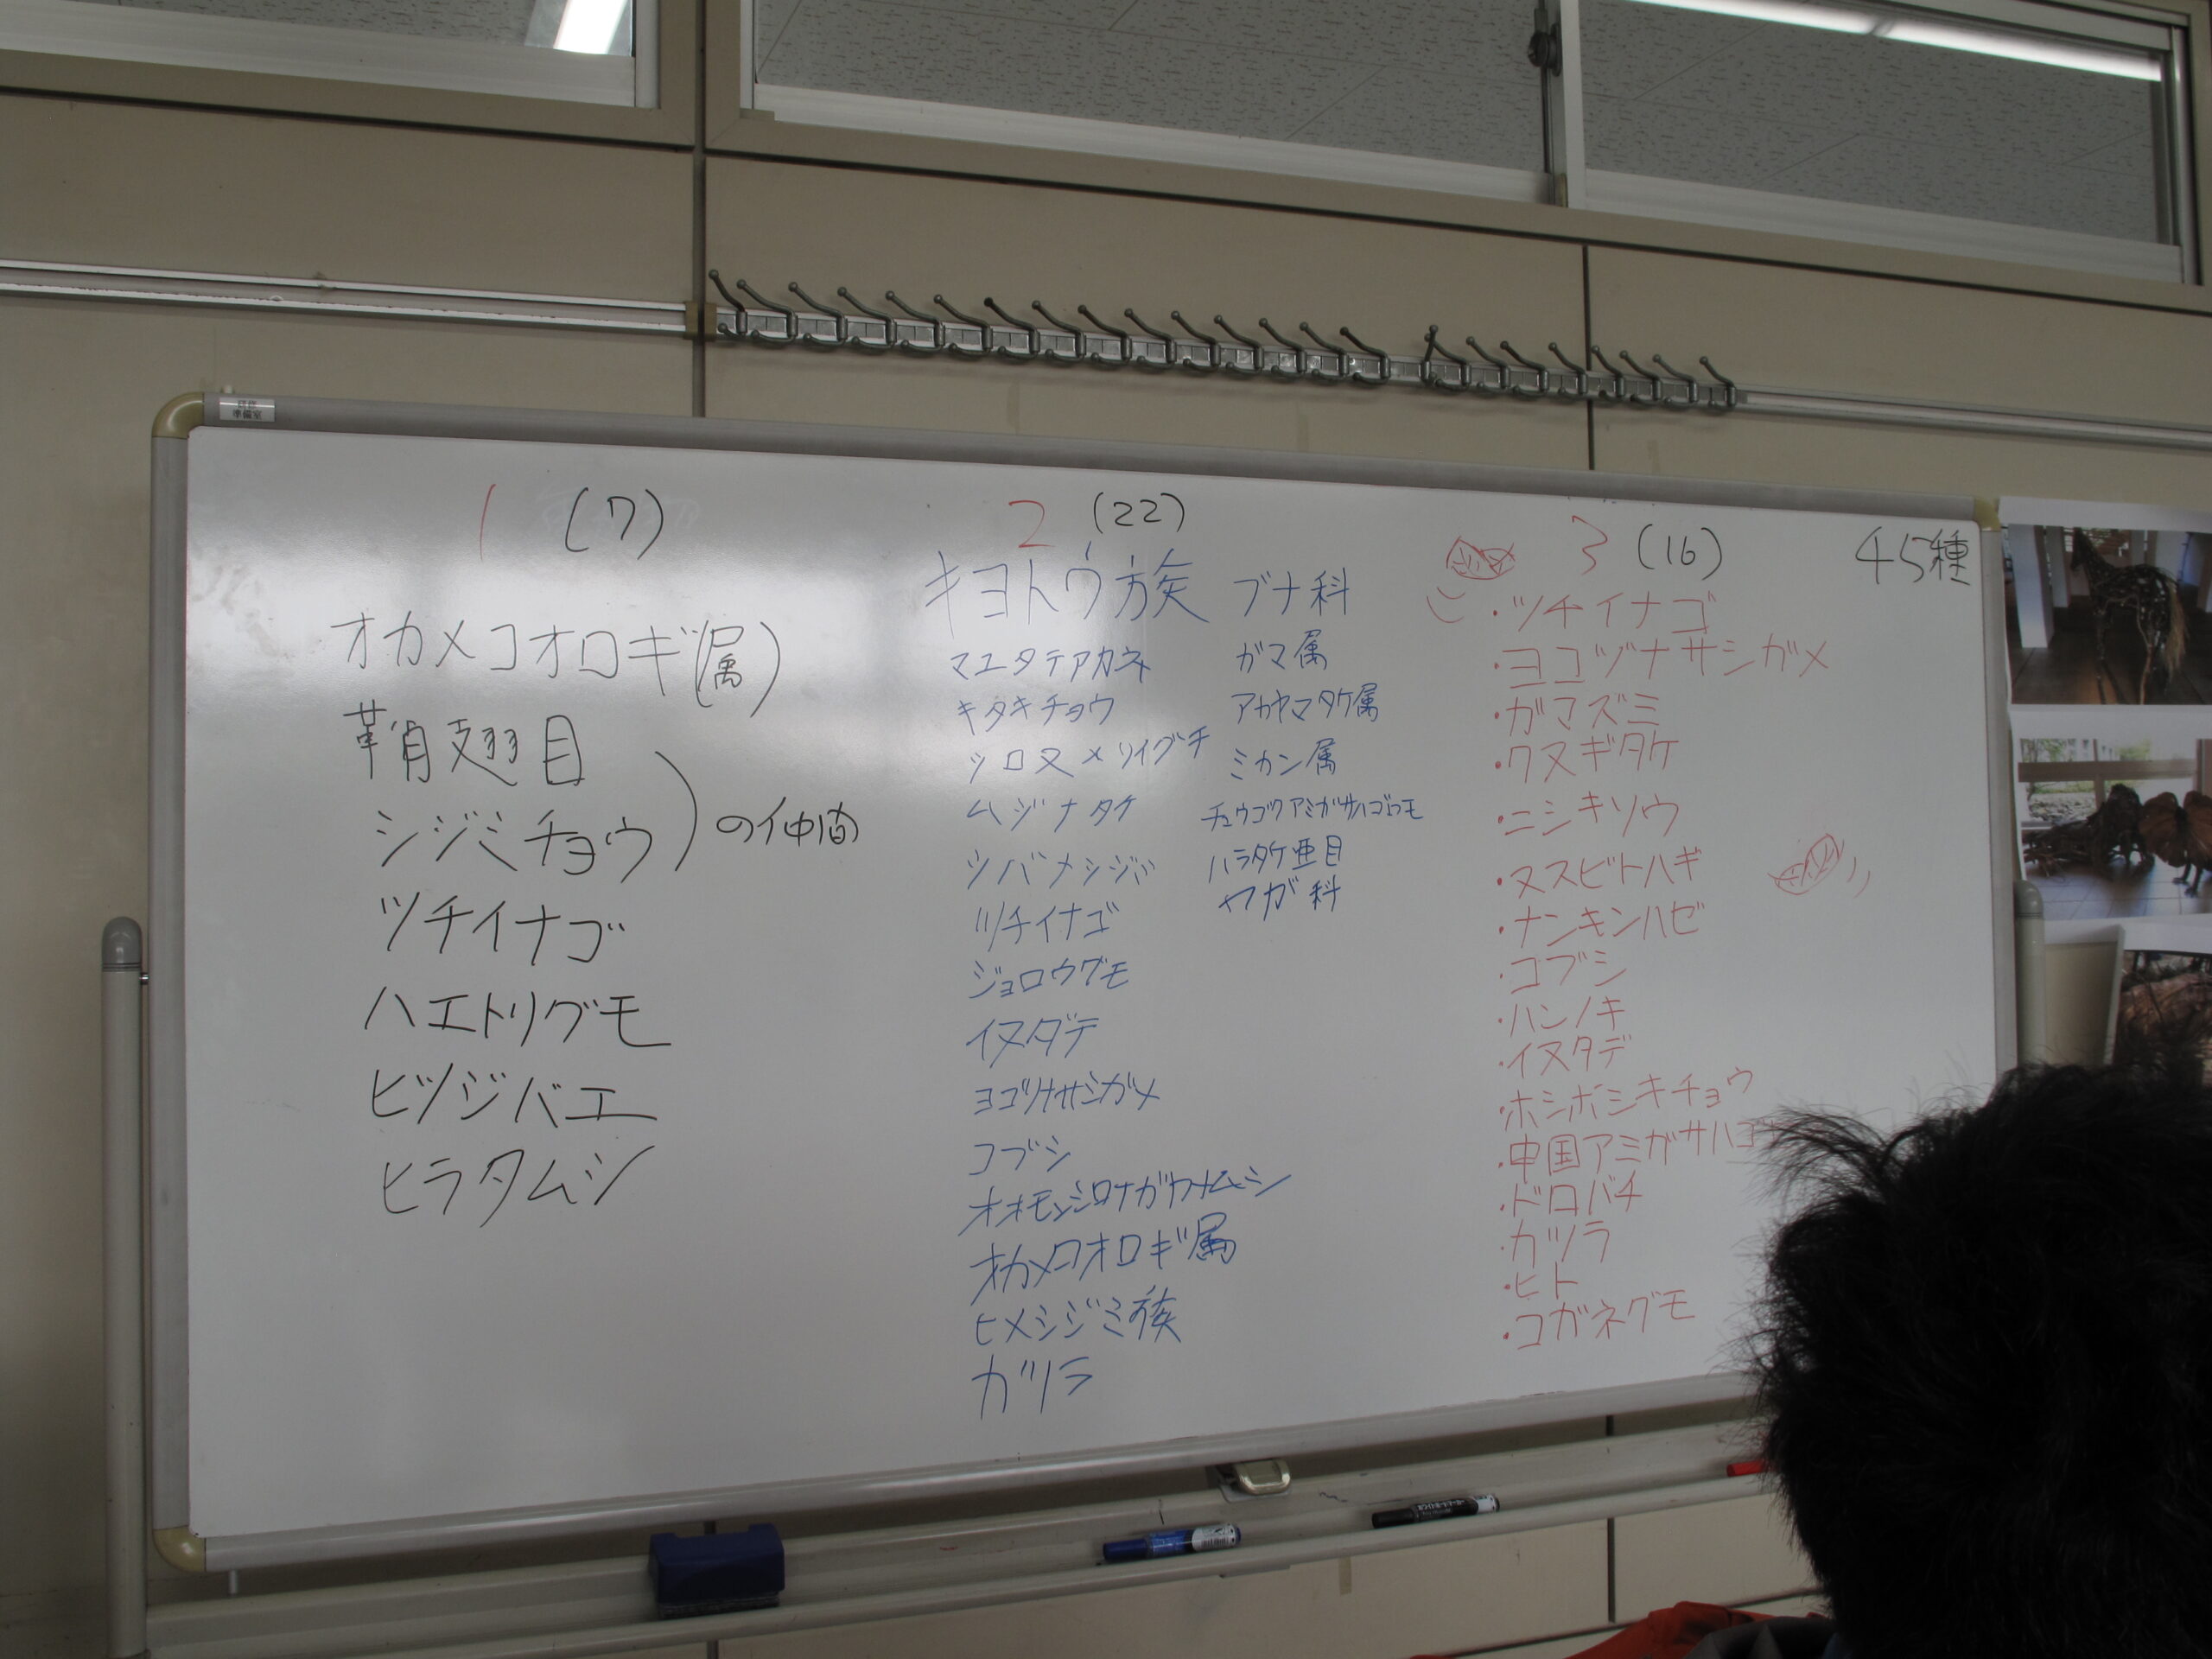 1 (7)
オカメコオロギ(属)
鞘翅目
シジミチョウ
の仲間
ツチイナゴ
ハエトリグモ
ヒツジバエ
ヒラタムシ
2 (22)
キヨトウ族
マユタテアカネ
キタキチョウ
シロヌメリイグチ
ムジナタケ
ツバメシジミ
ツチイナゴ
ジョロウグモ
イヌダテ
ヨコヅナサシガメ
コブシ
オオモンシロナガカメムシ
オカメコオロギ属
ヒメシジミ族
カツラ
ブナ科
ガマ属
アカヤマタケ属
ミカン属
チュウゴクアミガサハゴロモ
ハラタケ亜目
ヤガ科
3 (16)
・ツチイナゴ
・ヨコヅナサシガメ
・ガマズミ
・クヌギタケ
・ニシキソウ
・ヌスビトハギ
・ナンキンハゼ
・コブシ
・ハンノキ
・イヌタデ
・ホシボシキチョウ
・中国アミガサハゴ
・ドロバチ
・カツラ
・ヒト
・コガネグモ
45種